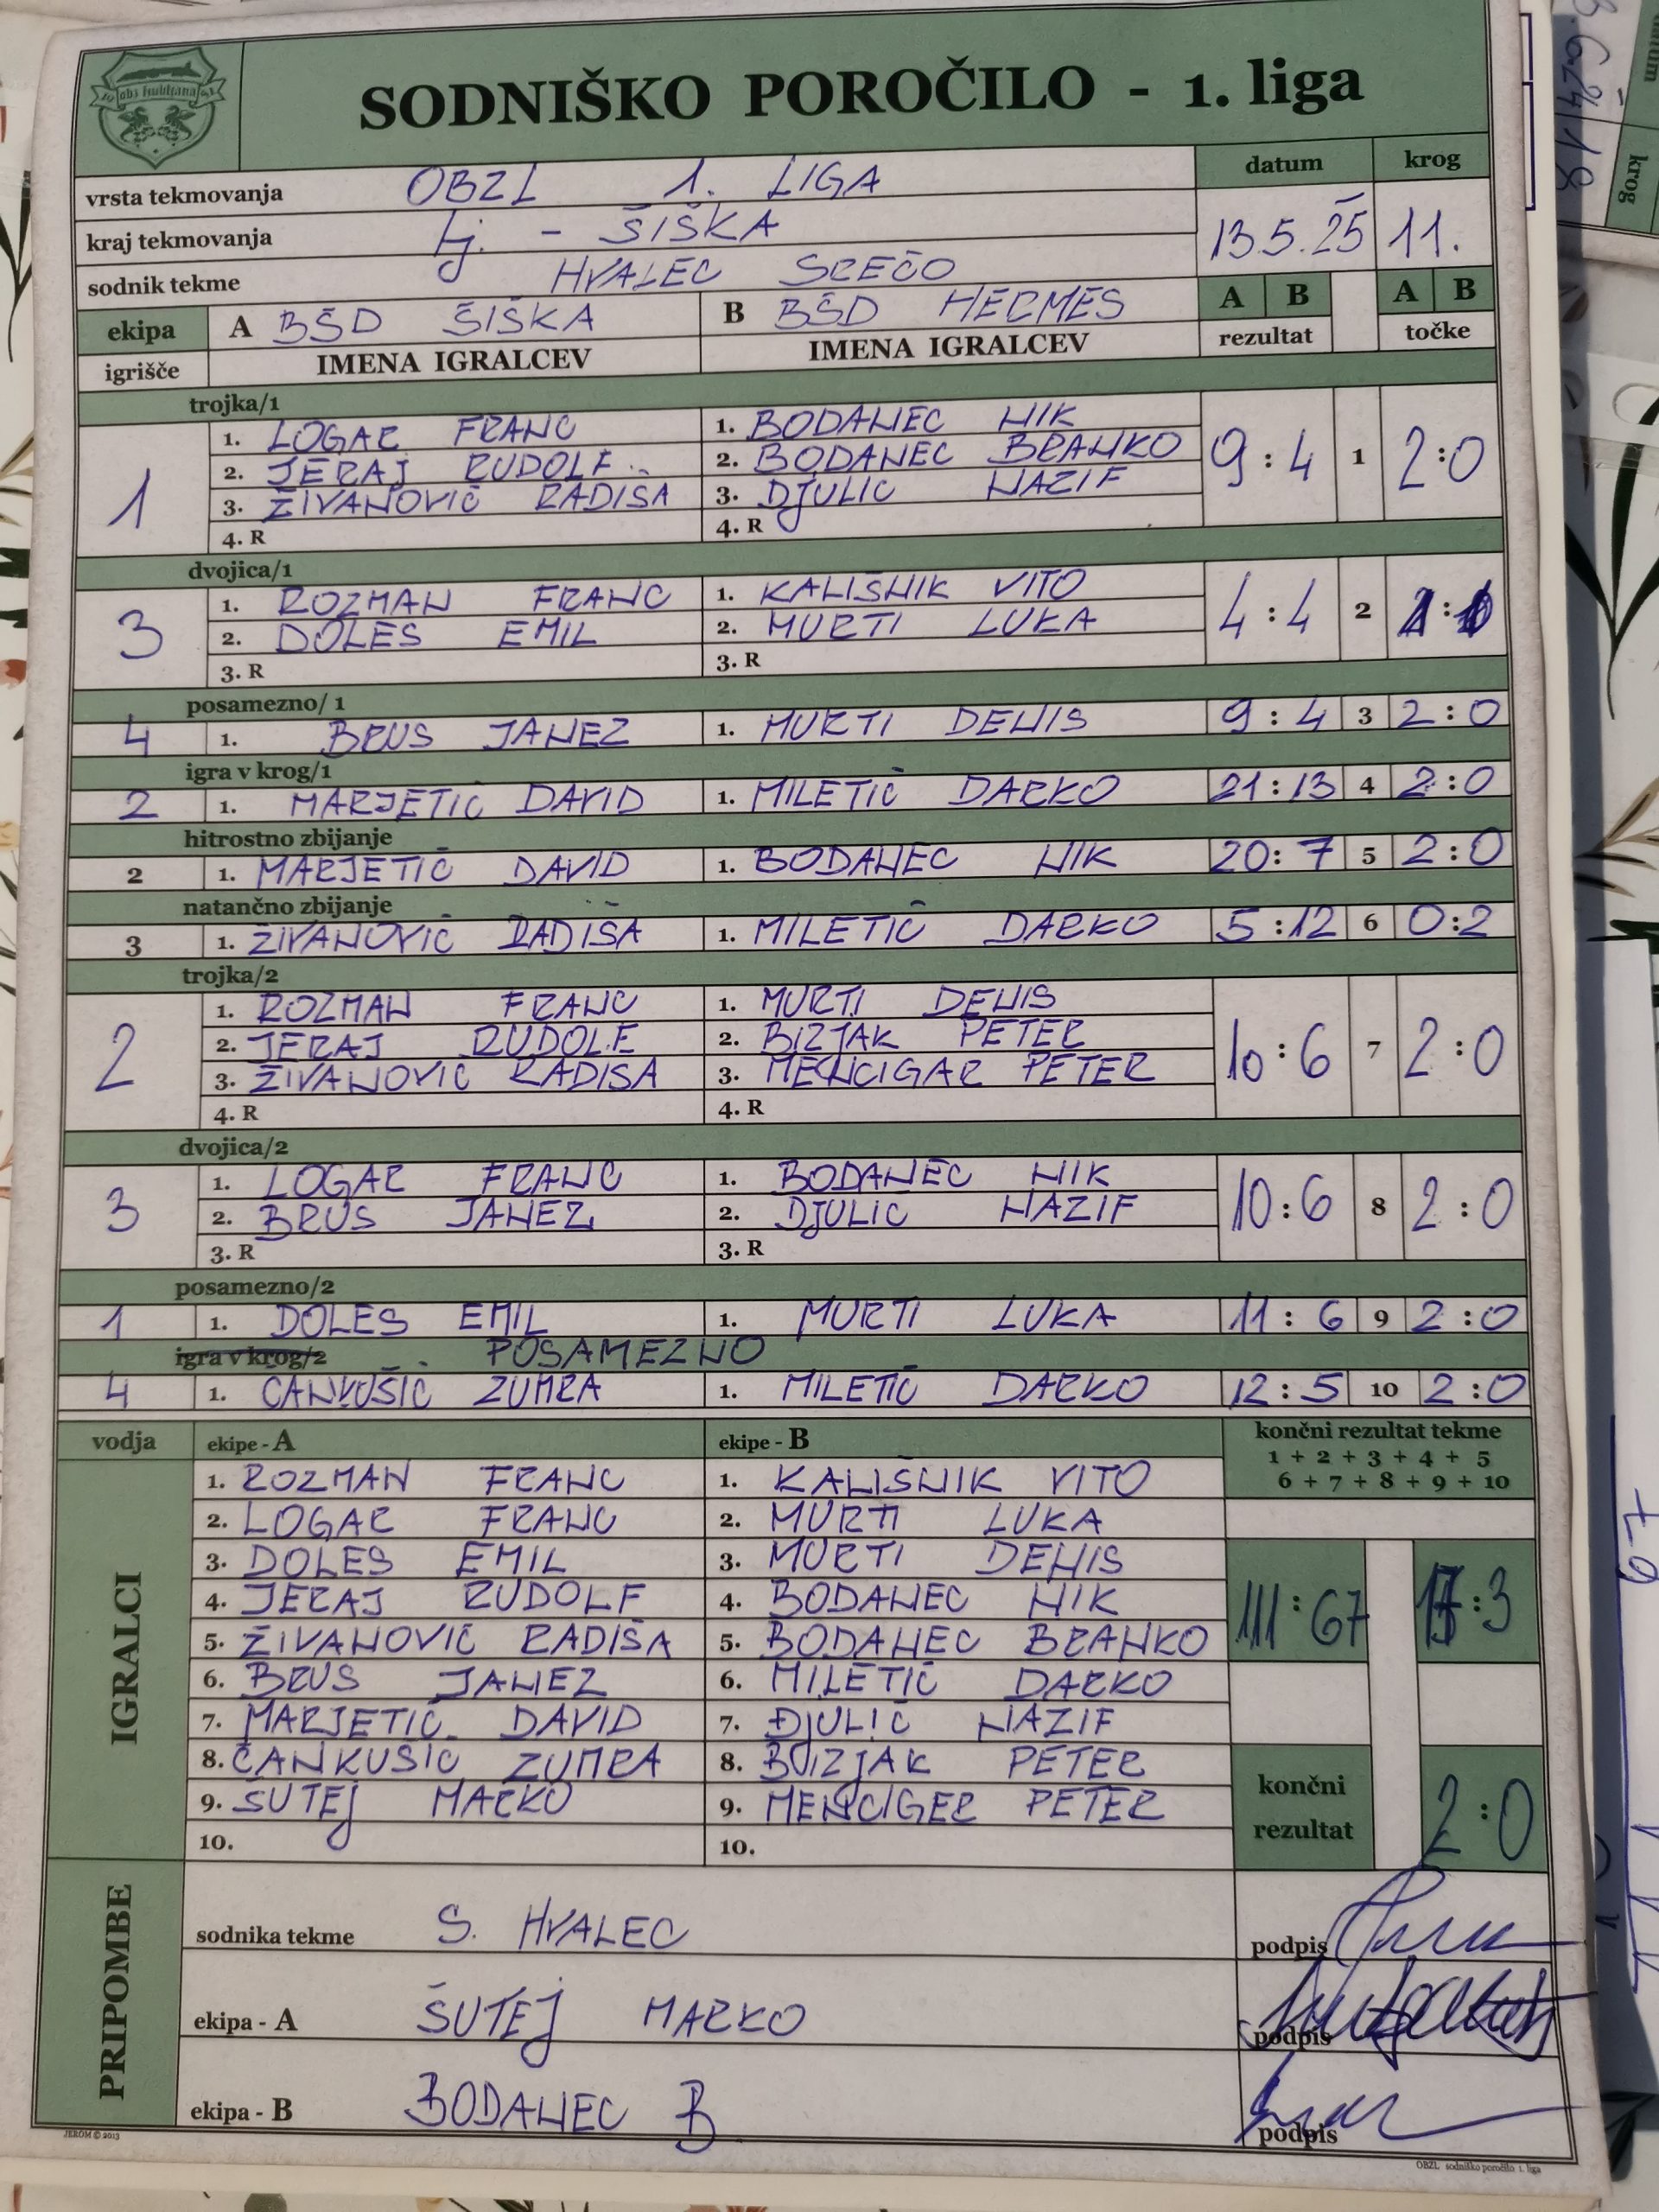 obz ljubljana
SODNIŠKO POROČILO - 1. liga
vrsta tekmovanja OBZL 1. LIGA datum krog
kraj tekmovanja Lj. - ŠIŠKA 13.5.25 11.
sodnik tekme HVALEC SREČO
ekipa A BŠD ŠIŠKA B BŠD HERMES A B A B
igrišče IMENA IGRALCEV IMENA IGRALCEV rezultat točke
trojka/1
1. LOGAR FRANC 1. BODANEC NIK
1 2. JERAJ RUDOLF 2. BODANEC BRANKO 9 : 4 1 2 : 0
3. ŽIVANOVIČ RADIŠA 3. DJULIC NAZIF
4. R 4. R
dvojica/1
3 1. ROZMAN FRANC 1. KALIŠNIK VITO 4 : 4 2 1 : 1
2. DOLES EMIL 2. MURTI LUKA
3. R 3. R
posamezno/ 1
4 1. BRUS JANEZ 1. MURTI DENIS 9 : 4 3 2 : 0
igra v krog/1
2 1. MARJETIČ DAVID 1. MILETIČ DARKO 21 : 13 4 2 : 0
hitrostno zbijanje
2 1. MARJETIČ DAVID 1. BODANEC NIK 20 : 7 5 2 : 0
natančno zbijanje
3 1. ŽIVANOVIČ RADIŠA 1. MILETIČ DARKO 5 : 12 6 0 : 2
trojka/2
1. ROZMAN FRANC 1. MURTI DENIS
2 2. JERAJ RUDOLF 2. BIZJAK PETER 10 : 6 7 2 : 0
3. ŽIVANOVIC RADISA 3. MENCIGAR PETER
4. R 4. R
dvojica/2
3 1. LOGAR FRANC 1. BODANEC NIK 10 : 6 8 2 : 0
2. BRUS JANEZ 2. DJULIC NAZIF
3. R 3. R
posamezno/2
1 1. DOLES EMIL 1. MURTI LUKA 11 : 6 9 2 : 0
igra v krog/2 POSAMEZNO
4 1. ČANKUŠIČ ZUMRA 1. MILETIČ DARKO 12 : 5 10 2 : 0
vodja ekipe - A ekipe - B končni rezultat tekme
1 + 2 + 3 + 4 + 5
6 + 7 + 8 + 9 + 10
IGRALCI
1. ROZMAN FRANC 1. KALIŠNIK VITO
2. LOGAR FRANC 2. MURTI LUKA
3. DOLES EMIL 3. MURTI DENIS
4. JERAJ RUDOLF 4. BODANEC NIK
5. ŽIVANOVIČ RADIŠA 5. BODANEC BRANKO 111 : 67 : 3
6. BRUS JANEZ 6. MILETIČ DARKO
7. MARJETIČ DAVID 7. ĐJULIČ NAZIF
8. ČANKUSIC ZUMRA 8. BIZJAK PETER
9. ŠUTEJ MARKO 9. MENCIGER PETER končni rezultat 2 : 0
10. 10.
PRIPOMBE
sodnika tekme S. HVALEC podpis
ekipa - A ŠUTEJ MARKO podpis
ekipa - B BODANEC B podpis
JEROM © 2013
OBZL sodniško poročilo 1. liga
krog